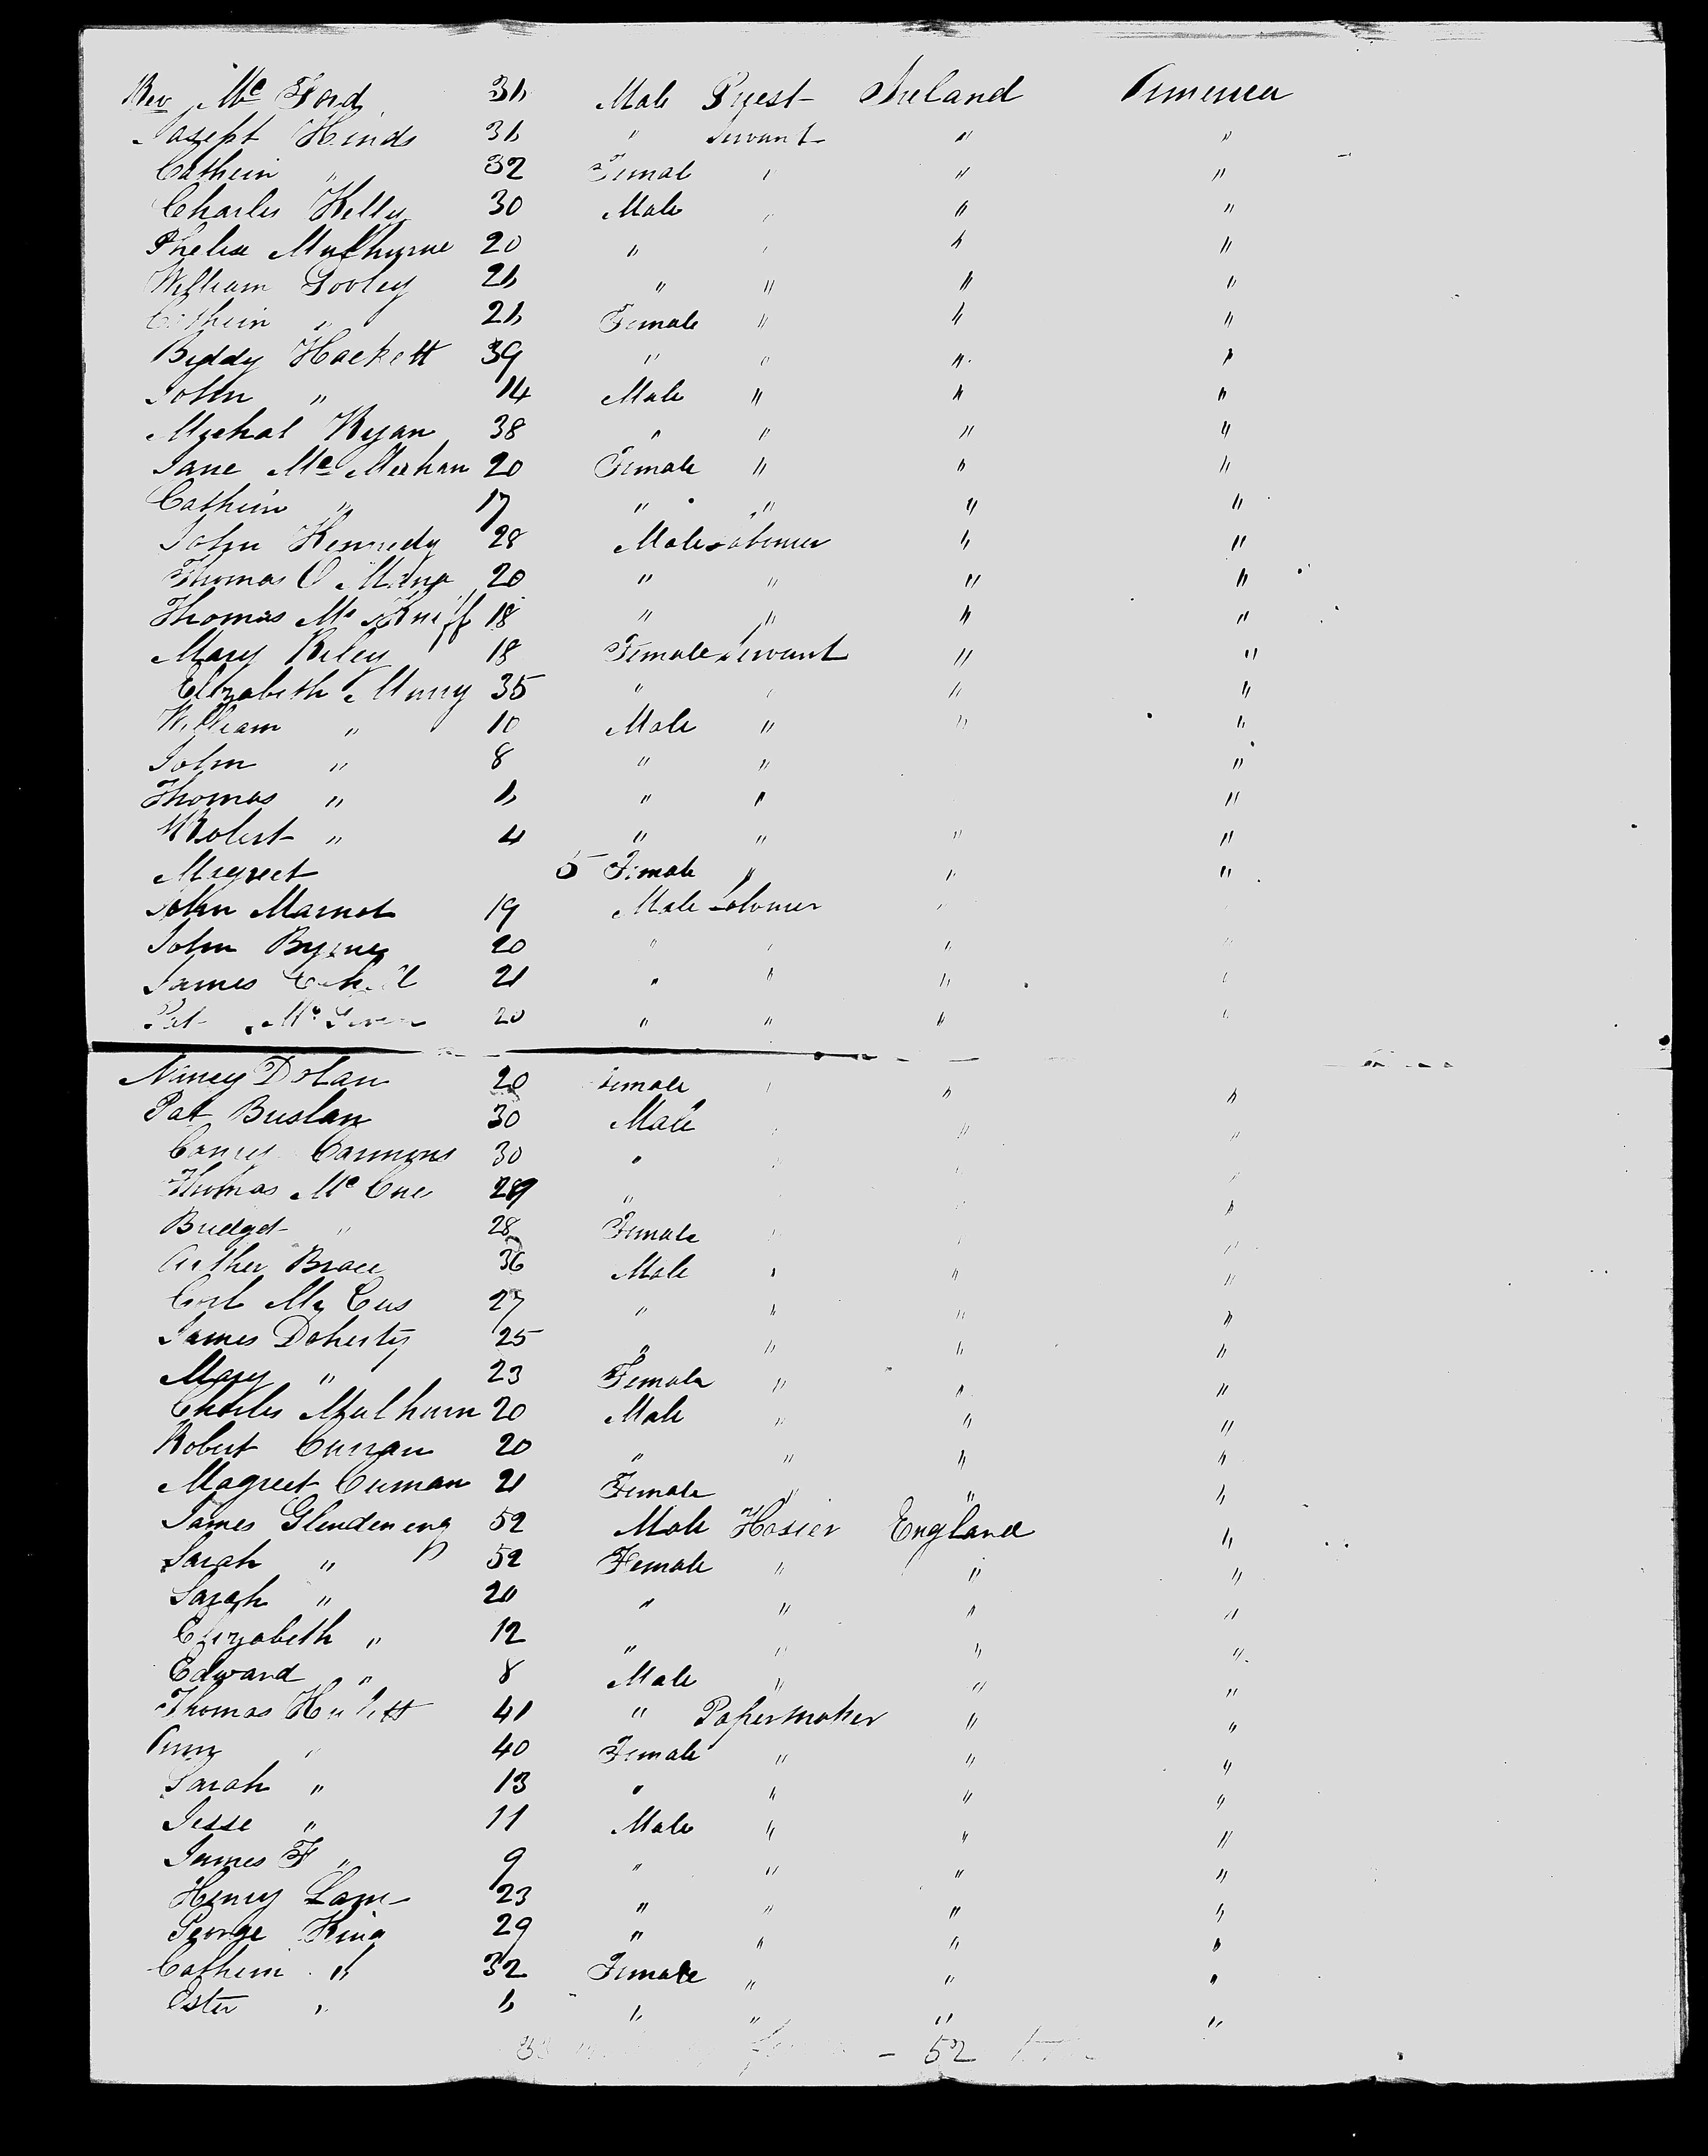 Rev Mc Ford 36 Male Pryest Ireland America
Joseph Hinds 36 " Servant " "
Cathein " 32 Femal " " "
Charles Kelly 30 Male " " "
Phelix Mulhyrne 20 " " " "
William Gooley 26 " " " "
Cathein " 26 Female " " "
Byddy Hackett 39 " " " "
John " 14 Male " " "
Mychal Ryan 38 " " " "
Jane Mc Meehan 20 Female " " "
Cathein " 17 " " " "
John Kennedy 28 Male Labourer " "
Thomas O 20 " " " "
Thomas Mc 18 " " " "
Mary Riley 18 Female Servant " "
Elizabeth Murry 35 " " " "
William " 10 Male " " "
John " 8 " " "
Thomas " 6 " " "
Robert " 4 " " " "
Magreet 5 Female " " "
John 19 Male Labourer "
John Byrne 20 " " " "
James 21 " " " "
Pat Mc 20 " " " "
Nancy Dolan 20 Female " " "
Pat Breslan 30 Male " " "
30 " " " "
Thomas Mc Cue 29 " "
Bridget " 28 Female " " "
Arther Brace 36 Male " " "
27 " " " "
James Doherty 25 " " " "
Mary " 23 Female " " "
Charles Mulhurn 20 Male " " "
Robert Curran 20 " " " "
Magreet Curran 21 Female " " "
James Glendening 52 Male Hosier England "
Sarah " 52 Female " " "
Sarah " 20 " " " "
Elizabeth " 12 " " " "
Edward " 8 Male " " "
Thomas 41 " Papermaker " "
" 40 Female " " "
Sarah " 13 " " " "
Jesse " 11 Male " " "
James F " 9 " " " "
Henry Lane 23 " " " "
George King 29 " " " "
Cathein " 32 Female " " "
Ester " 6 " " " "
- 52